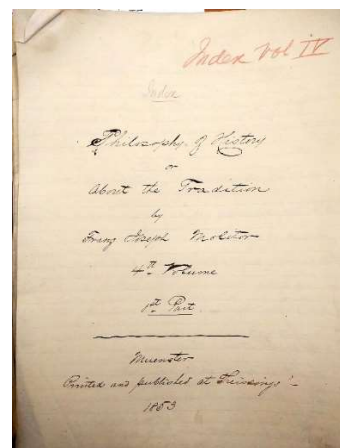 Index Vol IV
Index
Philosophy of History
or
About the Tradition
by
Franz Joseph Molitor
4th Volume
1st Part
Muenster
Printed and published at
1853